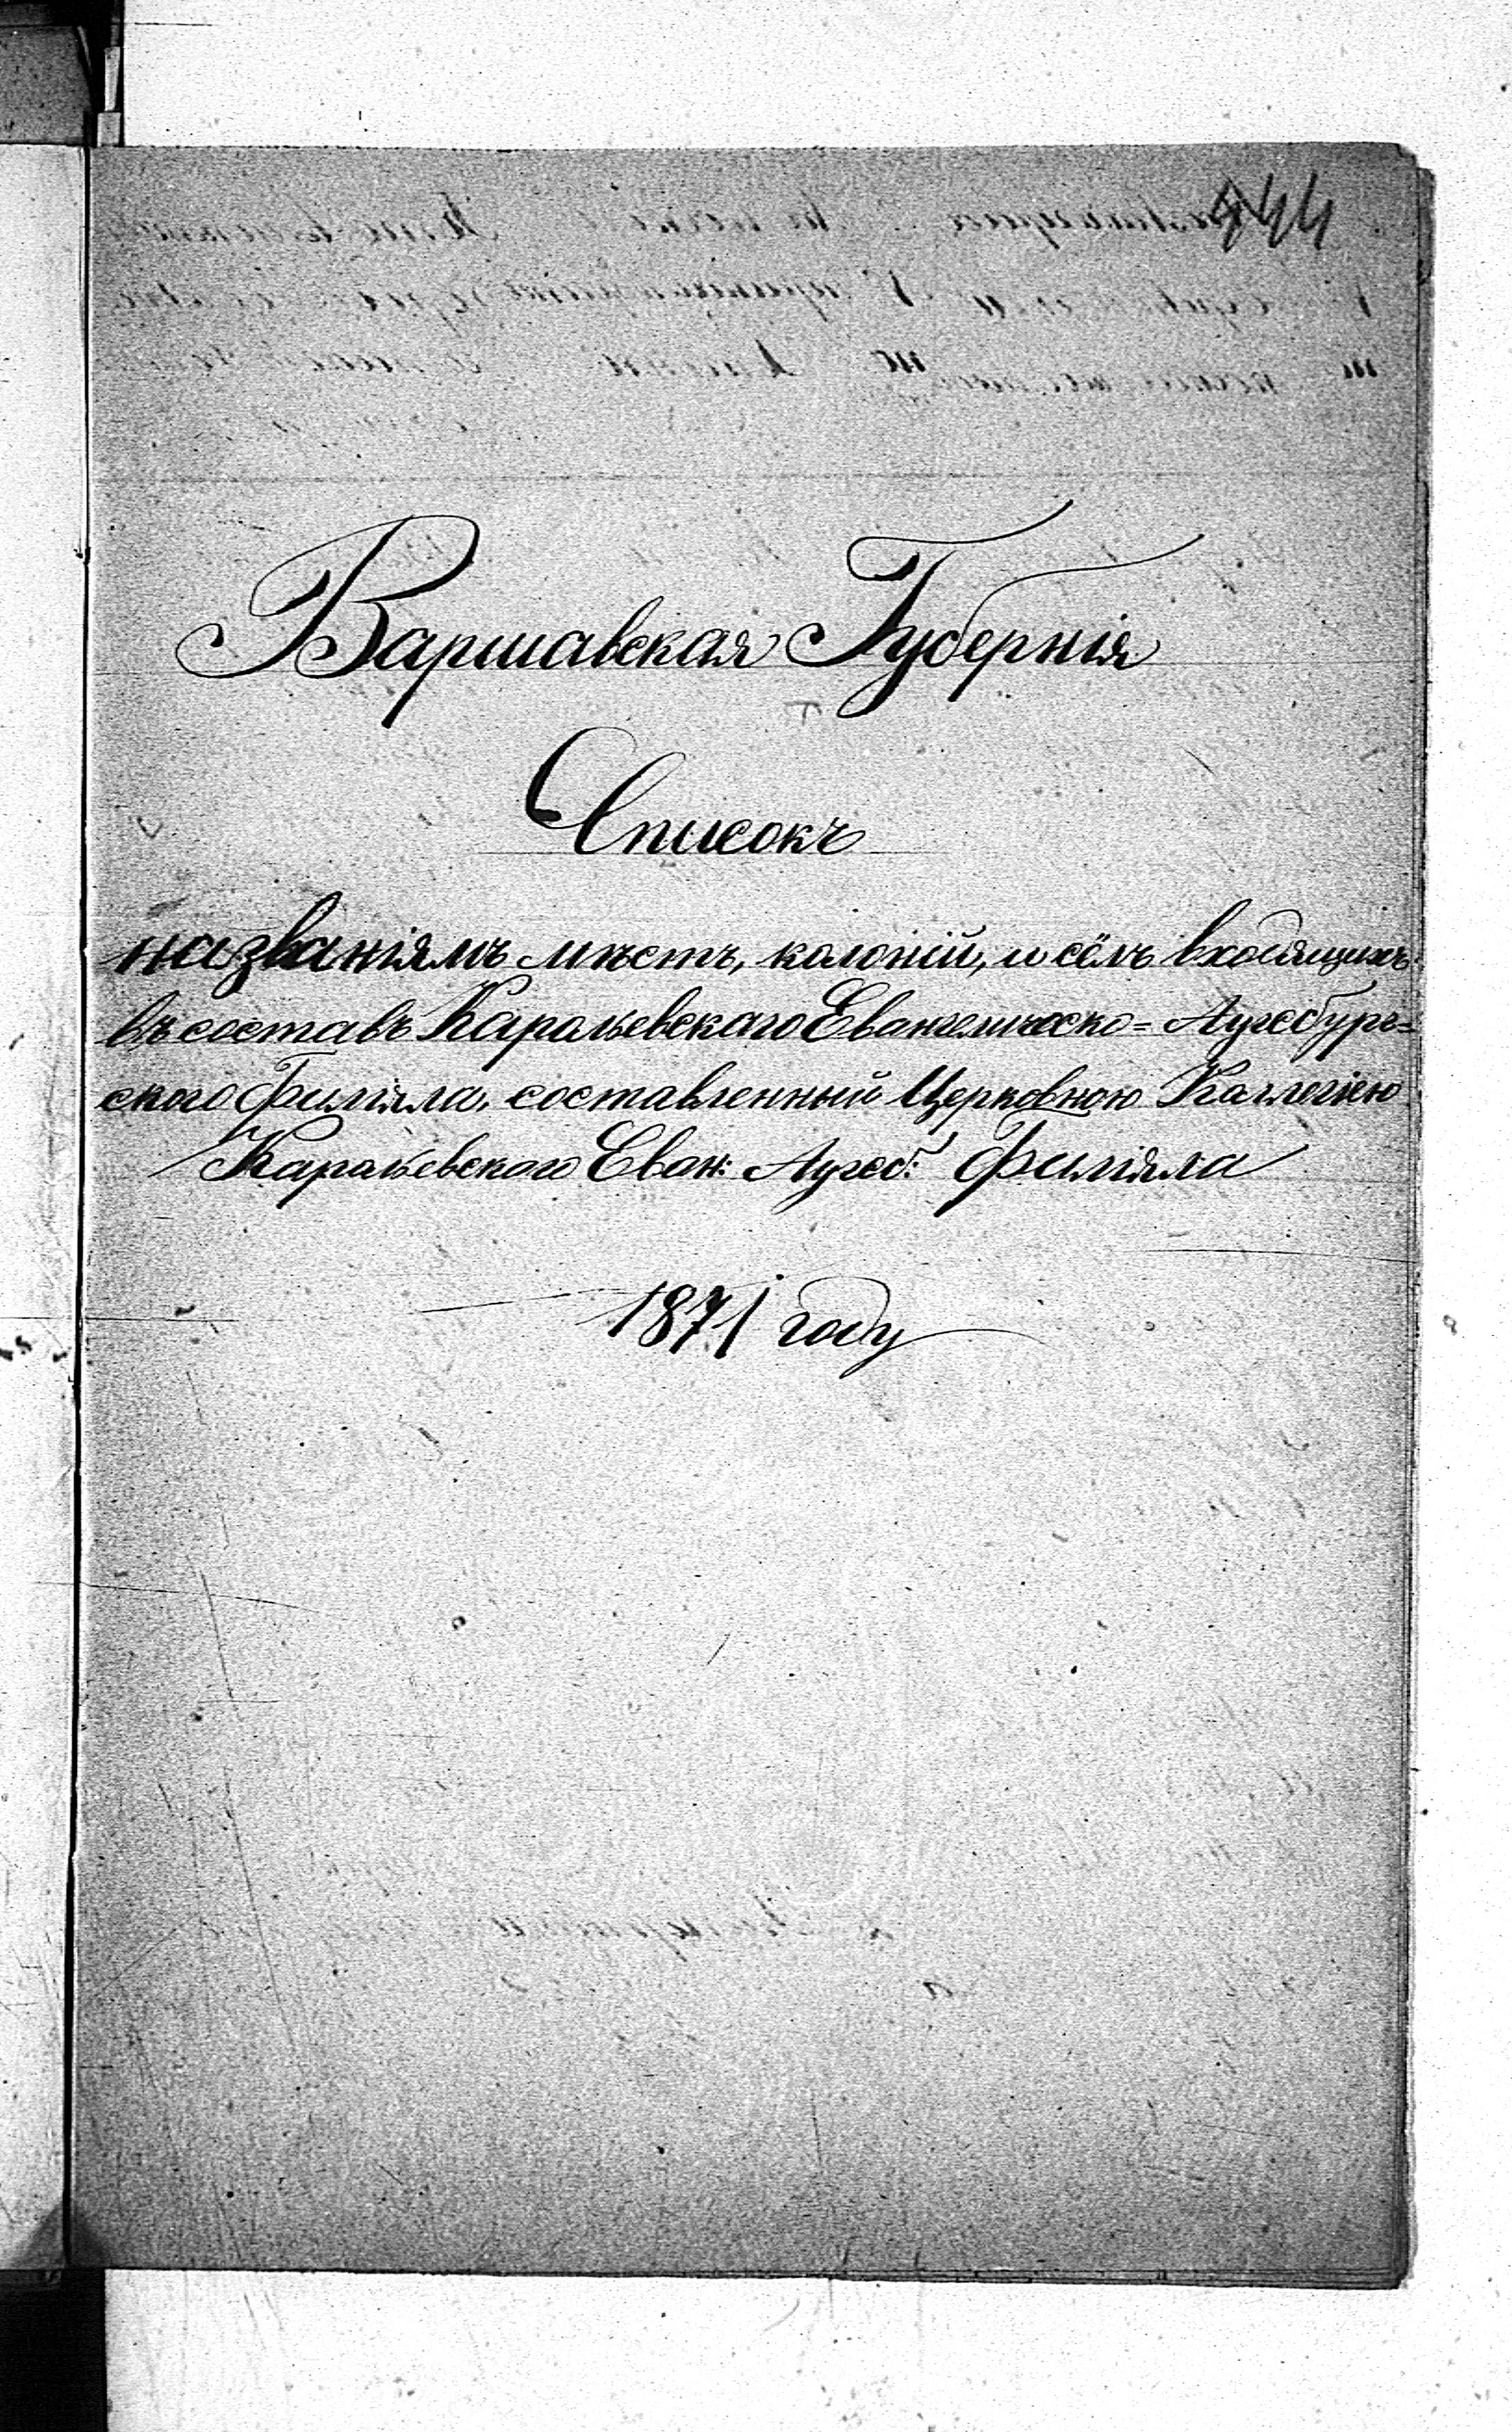 444
Варшавская Губернія
Списокъ
названіямъ мѣстъ, колоній, и сёлъ входящихъ
въ составъ Карольевскаго Евангелическо= Аугсбург=
ского Филіяла, составленный Церковною Каллегіею
Карольевскаго Еван: Аугсб: Филіяла
1871 году